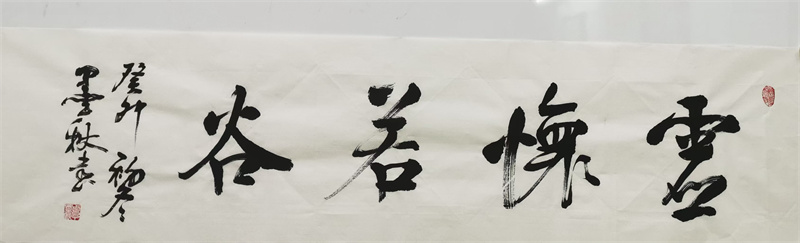 虚懷若谷
癸卯初冬
墨秋書